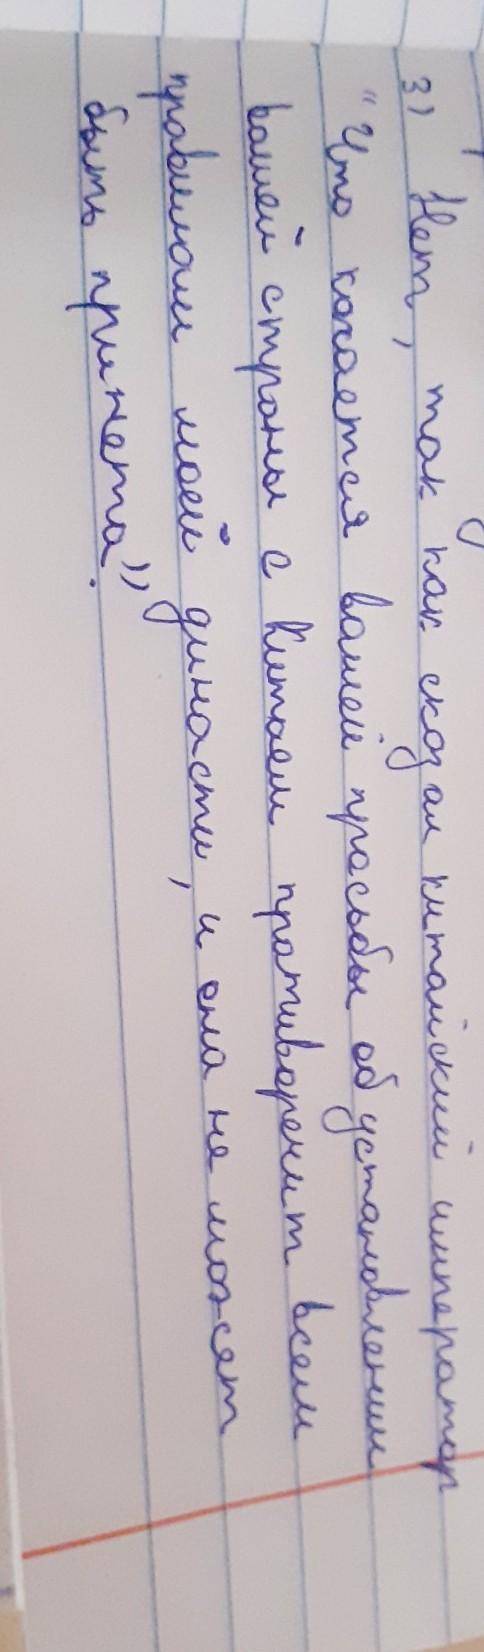 3) Нет, так как сказал китайский император
"Что косается вашей прасьбы об установлении
вашей страны с Китаем противоречит всем
правилам моей династи, и она не может
быть принета".